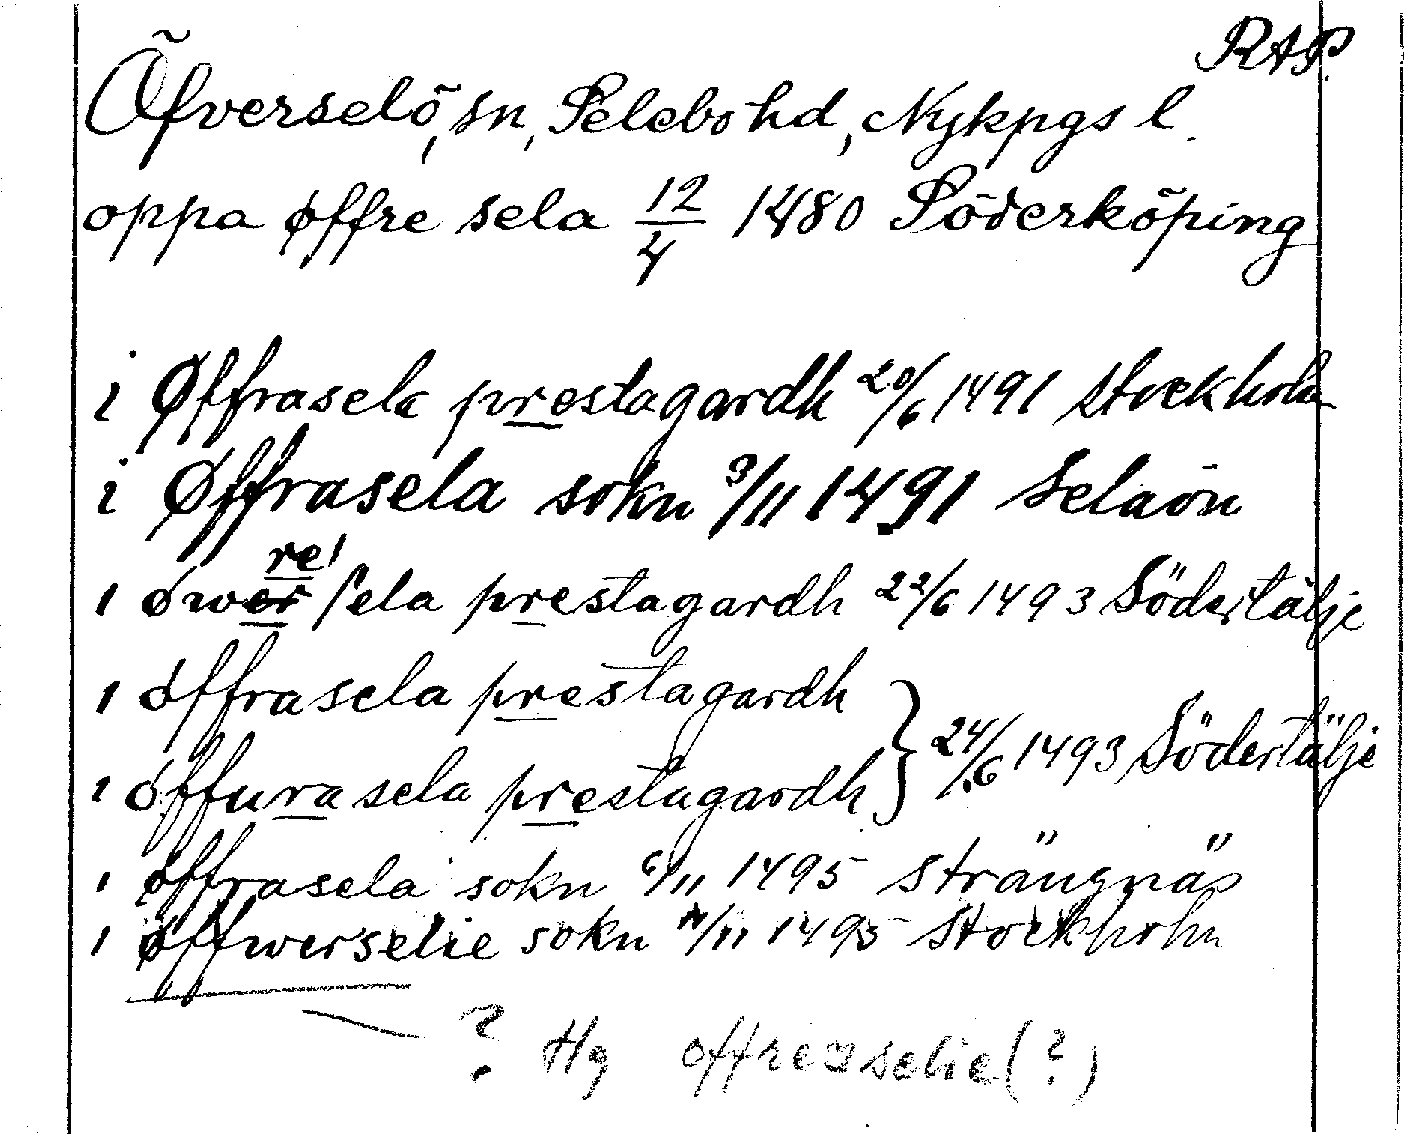 RAP.
Öfverselö, sn, Selebo hd, Nykpgs l.
oppa øffre sela 12/4 1480 Söderköping
i Øffrasela prestagardh 20/6 1491 Stockholm
i Øffrasela sokn 9/11 1491 Selaön
re!
i øwer sela prestagardh 22/6 1493 Södertälje
i offrasela prestagardh
} 24/6 1493 Södertälje
i offura sela prestagardh
i øffrasela sokn 6/11 1495 Strängnäs
i øffwerselie sokn 11/11 1495 Stockholm
? Hg offrexselie (?)